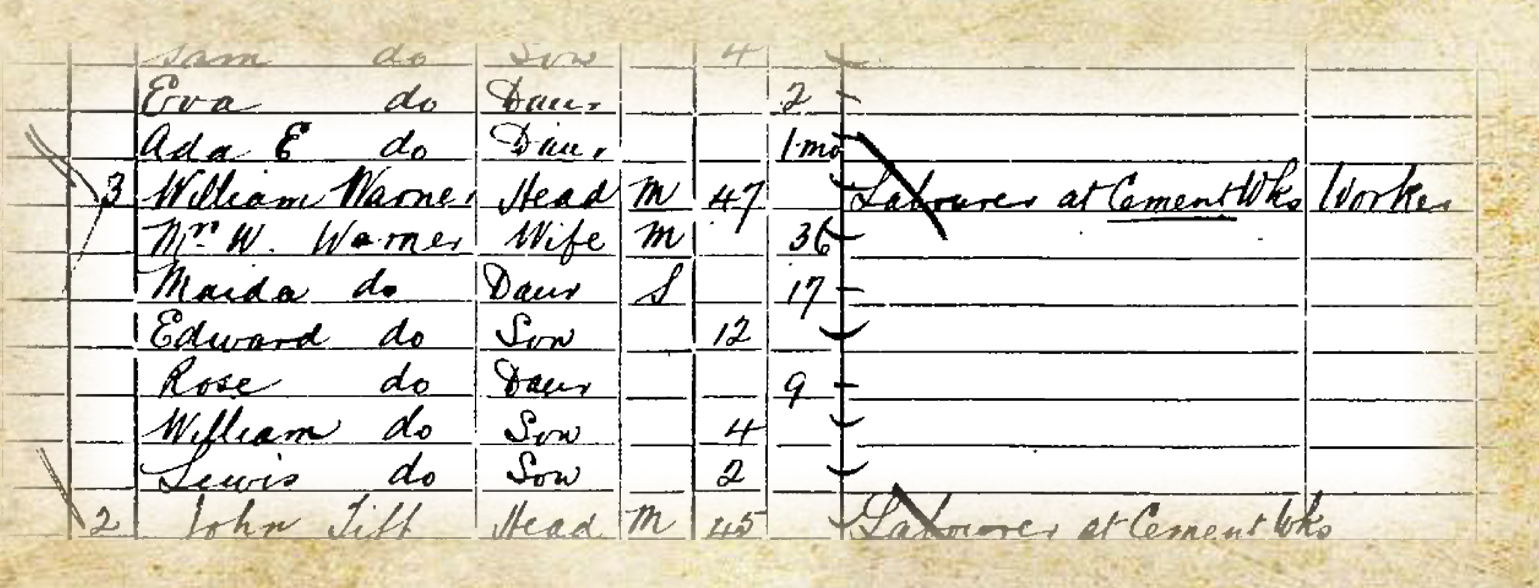 Sam do Son 4
Eva do Daur 2
Ada E do Daur 1 mo
3 William Warner Head M 47 Labourer at Cement Wks Worker
Mrs W. Warner Wife M 36
Maida do Daur S 17
Edward do Son 12
Rose do Daur 9
William do Son 4
Lewis do Son 2
2 John Tift Head M 45 Labourer at Cement Wks